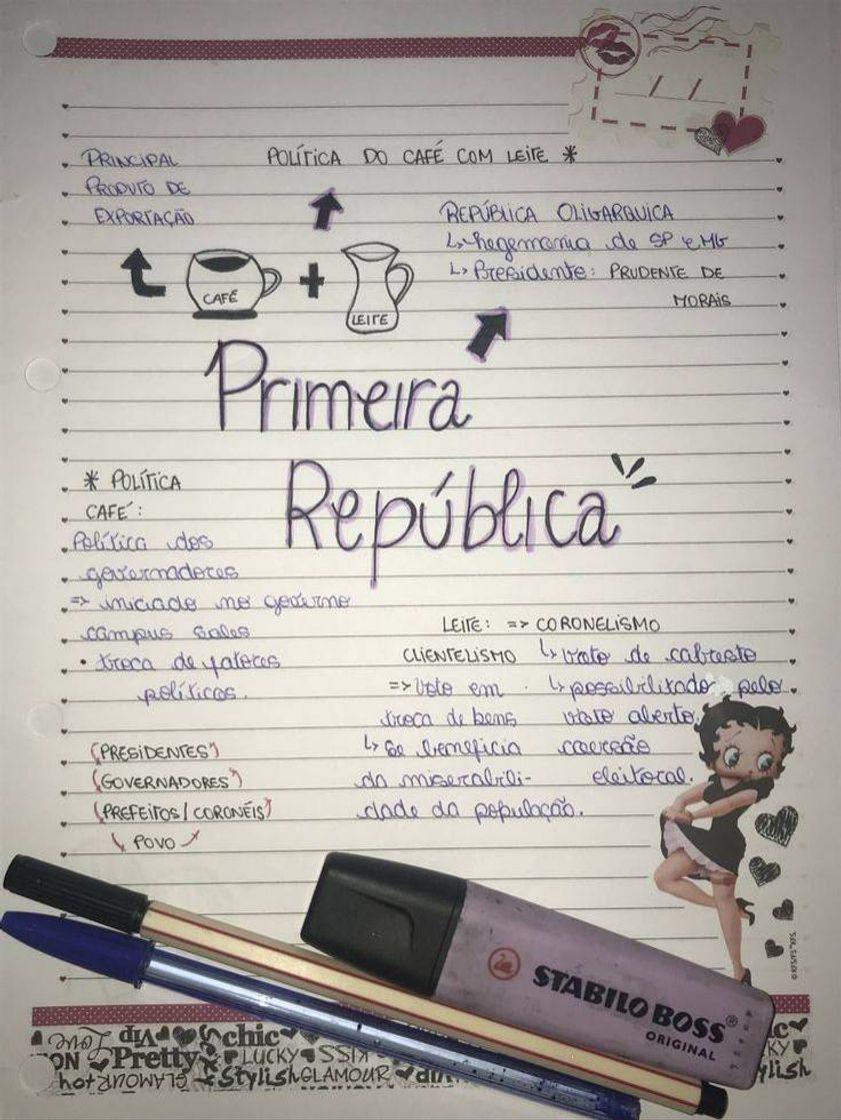 PRINCIPAL
PRODUTO DE
EXPORTAÇÃO
POLÍTICA DO CAFÉ COM LEITE *
CAFÉ
+
LEITE
REPÚBLICA OLIGARQUICA
↳ hegemonia de SP e MG
↳ Presidente: PRUDENTE DE
MORAIS
Primeira
República
* POLÍTICA
CAFÉ:
Política dos
governadores
=> iniciado no governo
campus sales
• troca de fatores
políticos.
(PRESIDENTES)
(GOVERNADORES)
(PREFEITOS/CORONÉIS)
POVO
LEITE: => CORONELISMO
↳ voto de cabresto
↳ possibilitado pelo
voto aberto.
coersão
eleitoral.
CLIENTELISMO
=> Voto em
troca de bens
↳ Se beneficia
da miserabili-
dade da população.
STABILO BOSS®
ORIGINAL
Love VIP chic
Pretty LUCKY KISS
hot GLAMOUR Stylish GLAMOUR